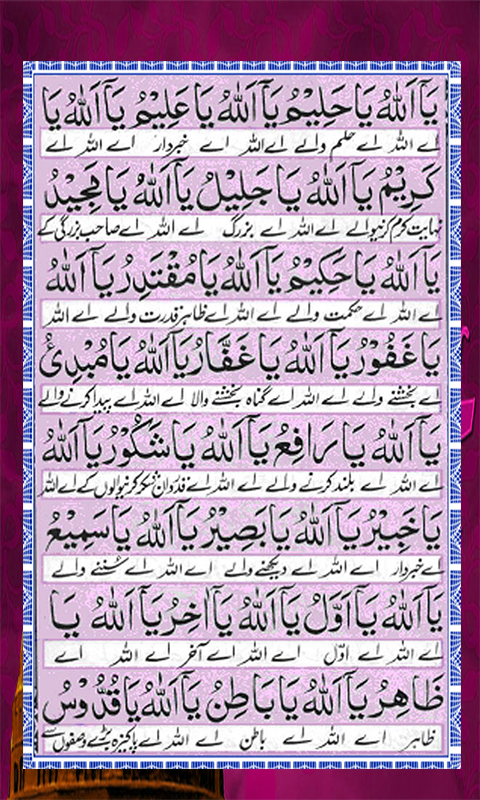 يَآ اَللهُ يَا حَلِيْمُ يَآ اَللهُ يَا عَلِيْمُ يَآ اَللهُ يَا
اے اللہ اے حلم والے اے اللہ اے خبردار اے اللہ اے
كَرِيْمُ يَآ اَللهُ يَا جَلِيْلُ يَآ اَللهُ يَا مَجِيْدُ
نہایت کرم کرنیوالے اے اللہ اے بزرگ اے اللہ اے صاحب بزرگی کے
يَآ اَللهُ يَا حَكِيْمُ يَآ اَللهُ يَا مُقْتَدِرُ يَآ اَللهُ
اے اللہ اے حکمت والے اے اللہ اے ظاہر قدرت والے اے اللہ
يَا غَفُوْرُ يَآ اَللهُ يَا غَفَّارُ يَآ اَللهُ يَا مُبْدِئُ
اے بخشنے والے اے اللہ اے گناہ بخشنے والا اے اللہ اے پیدا کرنے والے
يَآ اَللهُ يَا رَافِعُ يَآ اَللهُ يَا شَكُوْرُ يَآ اَللهُ
اے اللہ اے بلند کرنے والے اے اللہ اے قدردان شکر کرنیوالوں کے اے اللہ
يَا خَبِيْرُ يَآ اَللهُ يَا بَصِيْرُ يَآ اَللهُ يَا سَمِيْعُ
اے خبردار اے اللہ اے دیکھنے والے اے اللہ اے سُننے والے
يَآ اَللهُ يَآ اَوَّلُ يَآ اَللهُ يَآ اٰخِرُ يَآ اَللهُ يَا
اے اللہ اے اوّل اے اللہ اے آخر اے اللہ اے
ظَاهِرُ يَآ اَللهُ يَا بَاطِنُ يَآ اَللهُ يَا قُدُّوْسُ
ظاہر اے اللہ اے باطن اے اللہ اے پاکیزہ بڑے وصفوں سے